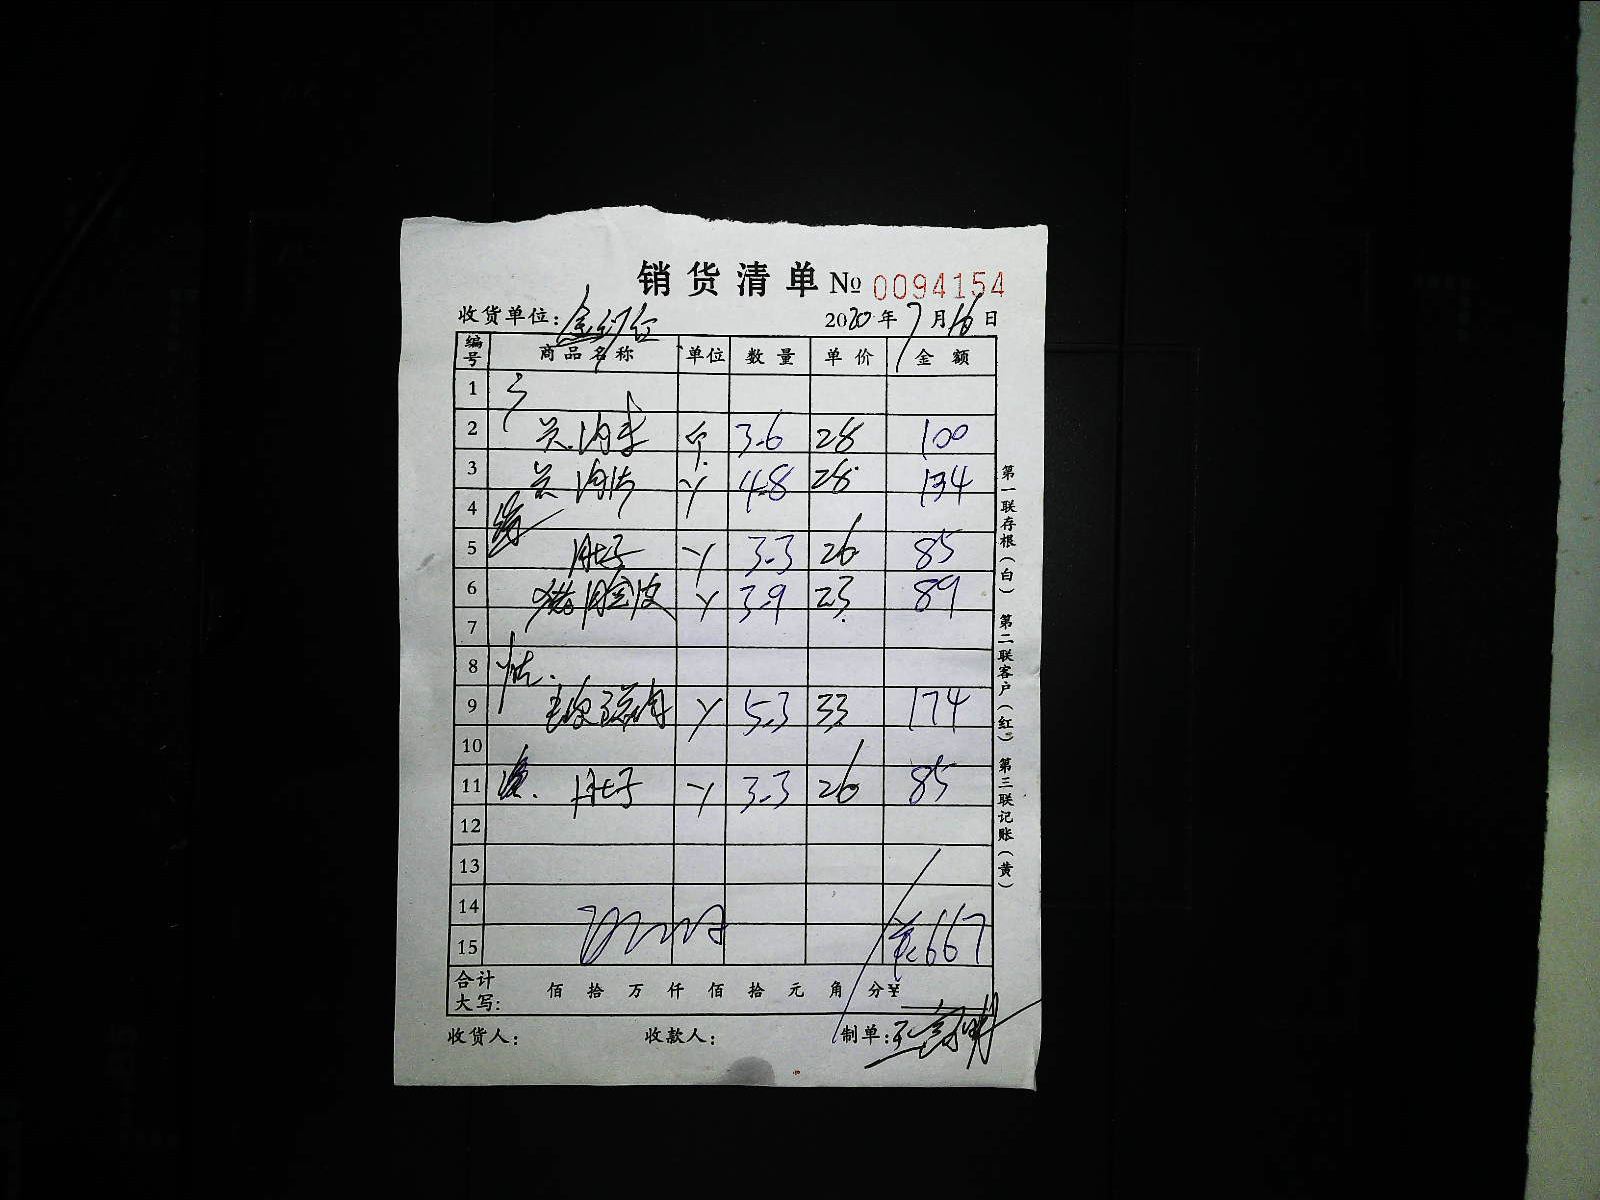 销货清单 № 0094154
收货单位: 2020年7月16日
编号 商品名称 单位 数量 单价 金额
1
2 3.6 28 100
3 4.8 28 134
4
5 肚子 3.3 26 85
6 猪 皮 3.9 23 89
7
8
9 5.3 33 174
10
11 肚子 3.3 26 85
12
13
14
15 667
合计大写: 佰 拾 万 仟 佰 拾 元 角 分 ¥
收货人: 收款人: 制单:
第一联存根(白) 第二联客户(红) 第三联记账(黄)